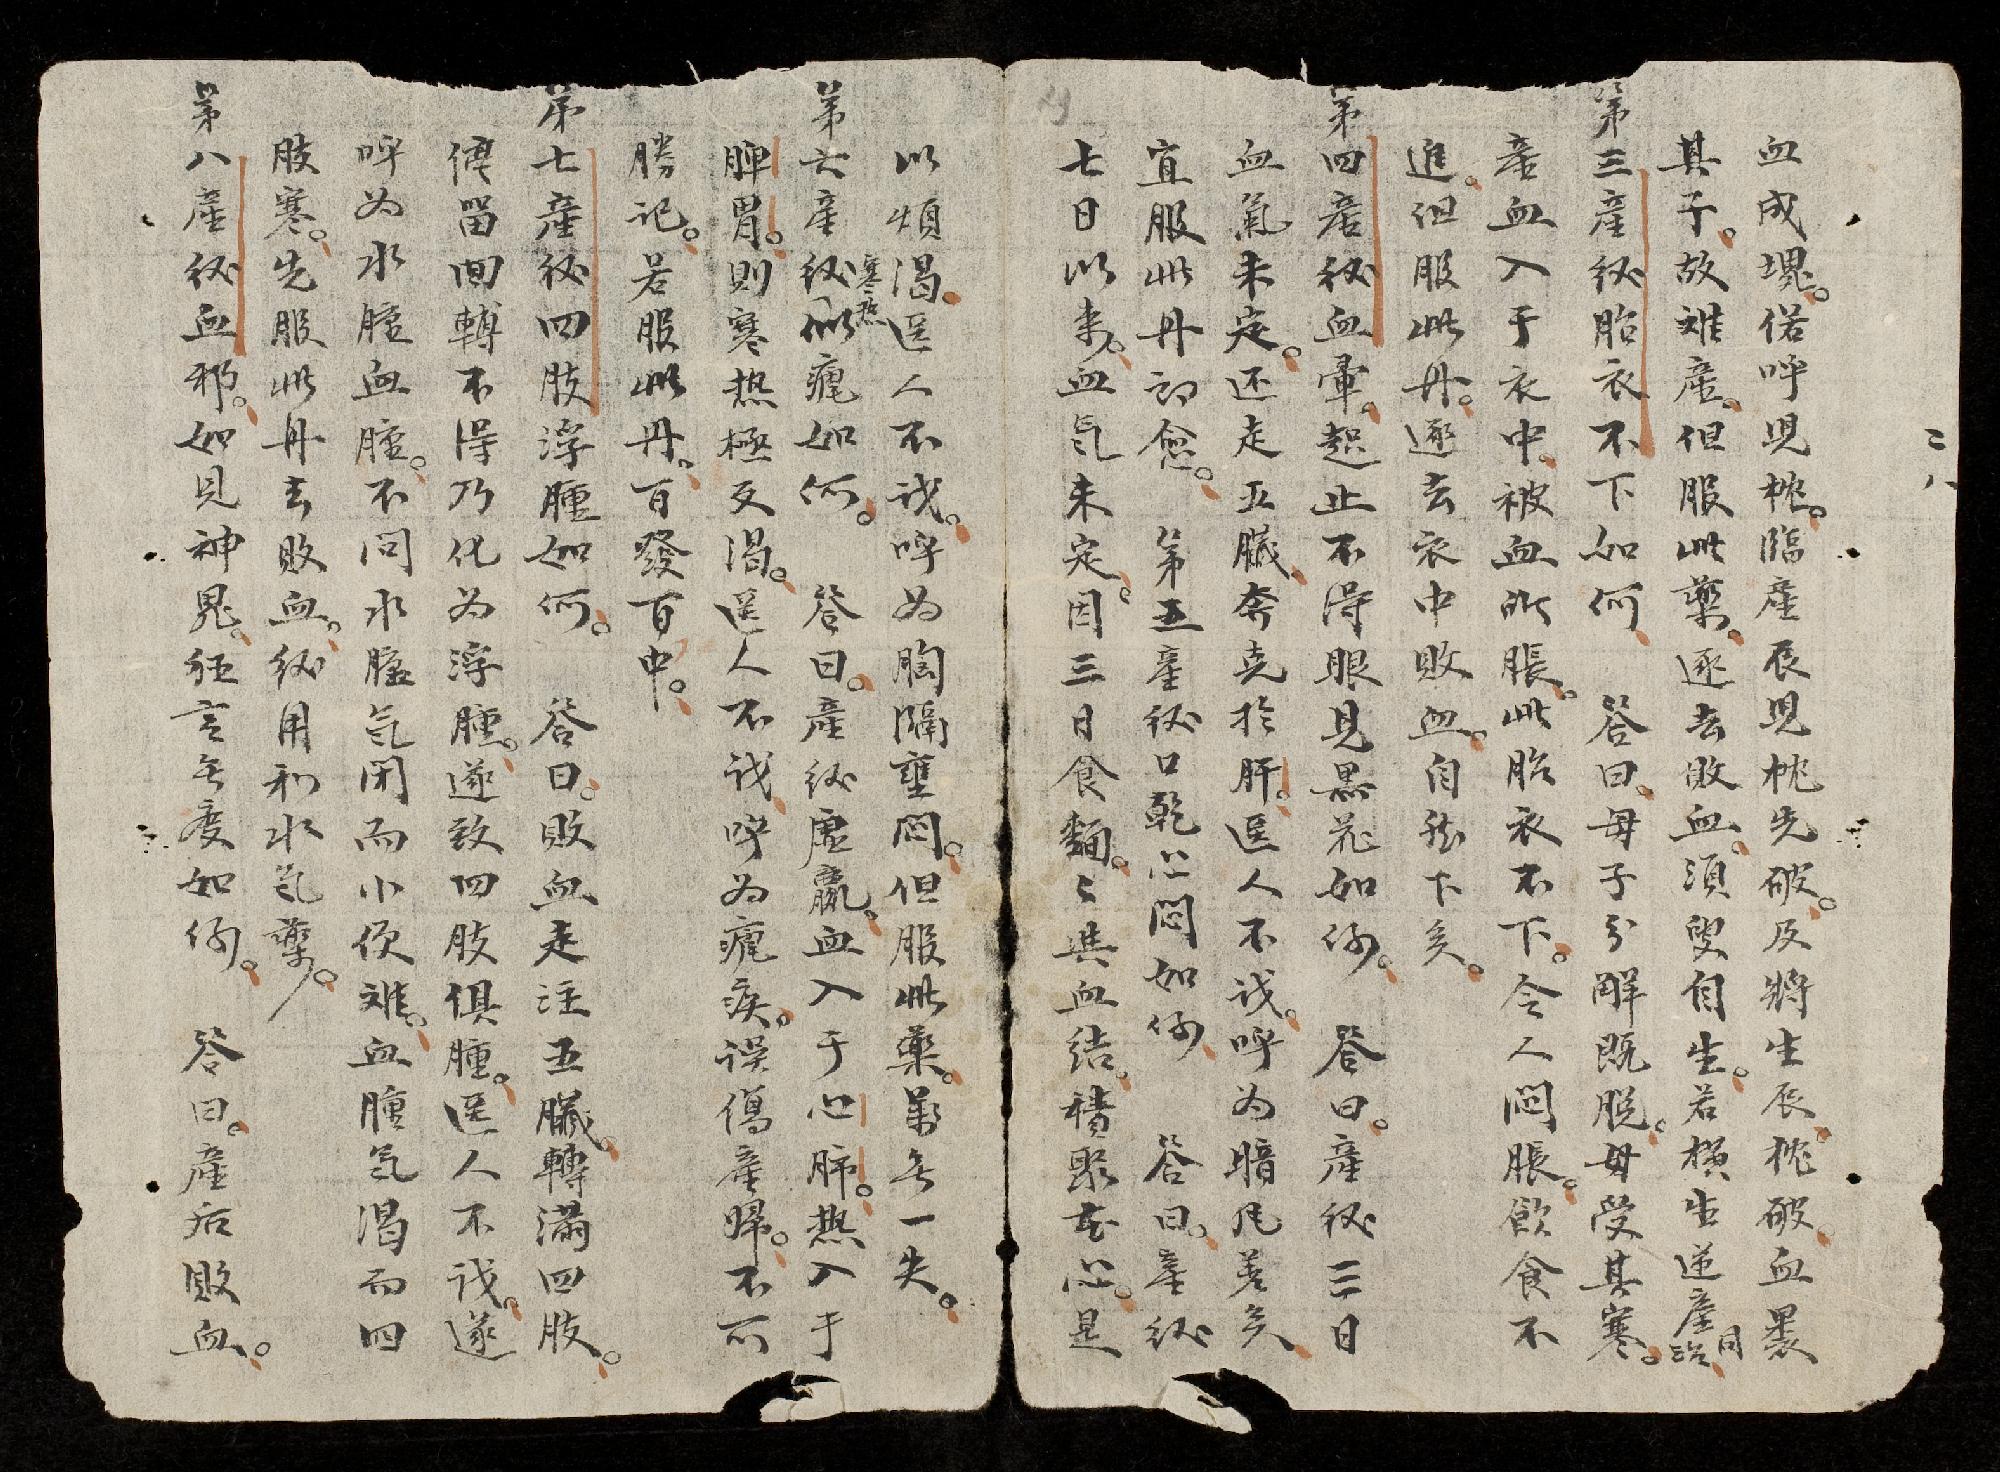 二八
血成塊。偌呼児枕。臨産辰児枕先破。及將生辰。枕破。血裹
其子。故难産。但服此藥。逐去敗血。須臾自生。若横生逆産同治
第三産後胎衣不下如何 答曰。母子分解既脱。母受其寒。
産血入于衣中。被血所脹。此胎衣不下。令人悶脹。飲食不
進。但服此丹。逐去衣中敗血。自然下矣。
第四産後血暈。起止不得眼見黒花如何。 答曰。産後三日
血氣未定。还走五臓。奔充於肝。医人不识。呼为暗风差矣
宜服此丹即愈。 第五産後口乾心悶如何 答曰。産後
七日以来。血气未定。因三日食麺。〻與血結。積聚在心。是
以煩渴。医人不识。呼为胸隔壅悶。但服此藥。萬无一失。
第六産後寒热似瘧如何。 答曰。産後虚羸。血入于心肺。热入于
脾胃。則寒热極反渴。医人不识 呼为瘧疾。误傷産婦。不可
勝记。若服此丹。百發百中。
第七産後四肢浮腫如何。 答曰。敗血走注五臓。轉滿四肢。
停留囬轉不得乃化为浮腫。遂致四肢俱腫。医人不识。遂
呼为水腫血腫。不问水腫气闭而小便难。血腫气渴而四
肢寒。先服此丹去敗血。後用利水气藥。
第八産後血邪。如見神鬼。狂言无度如何。 答曰。産后敗血。